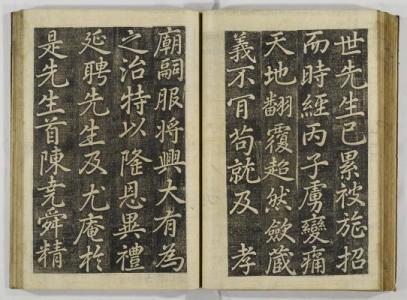 世先生已累被旌招
而時經丙子虜變痛
天地翻覆超然斂藏
義不肎苟就及　孝
廟嗣服將興大有為
之治特以隆恩異禮
延聘先生及尤庵於
是先生首陳堯舜精